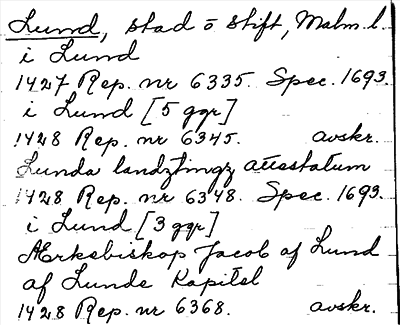 Lund, stad o stift, Malm. l.
i Lund
1427 Rep. nr 6335. Spec. 1693.
i Lund [5 ggr]
1428 Rep. nr 6345. avskr.
Lunda landztingz attestatum
1428 Rep. nr 6348. Spec. 1693.
i Lund [3 ggr]
Ærkebiskop Jacob af Lund
af Lunde Kapitel
1428 Rep. nr 6368. avskr.